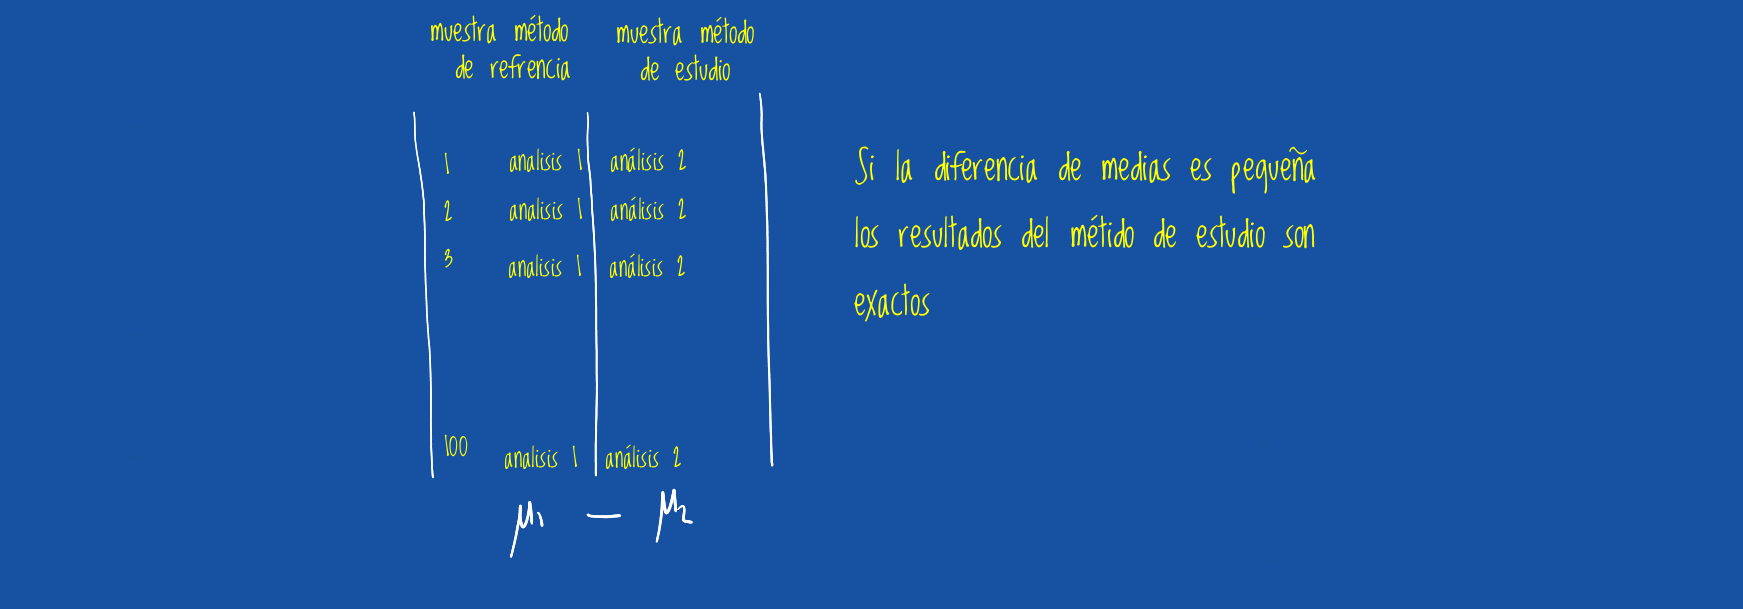 muestra método muestra método
de refrencia de estudio
1 analisis 1 análisis 2
2 analisis 1 análisis 2
3 analisis 1 análisis 2
100 analisis 1 análisis 2
μ1 — μ2
Si la diferencia de medias es pequeña
los resultados del métido de estudio son
exactos